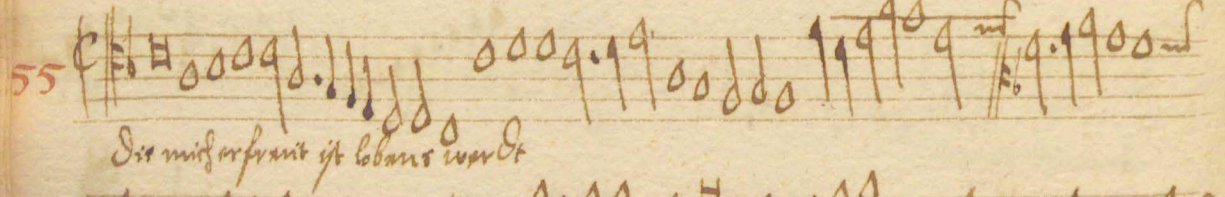 55
Die mich erfreut ist lobens werdt